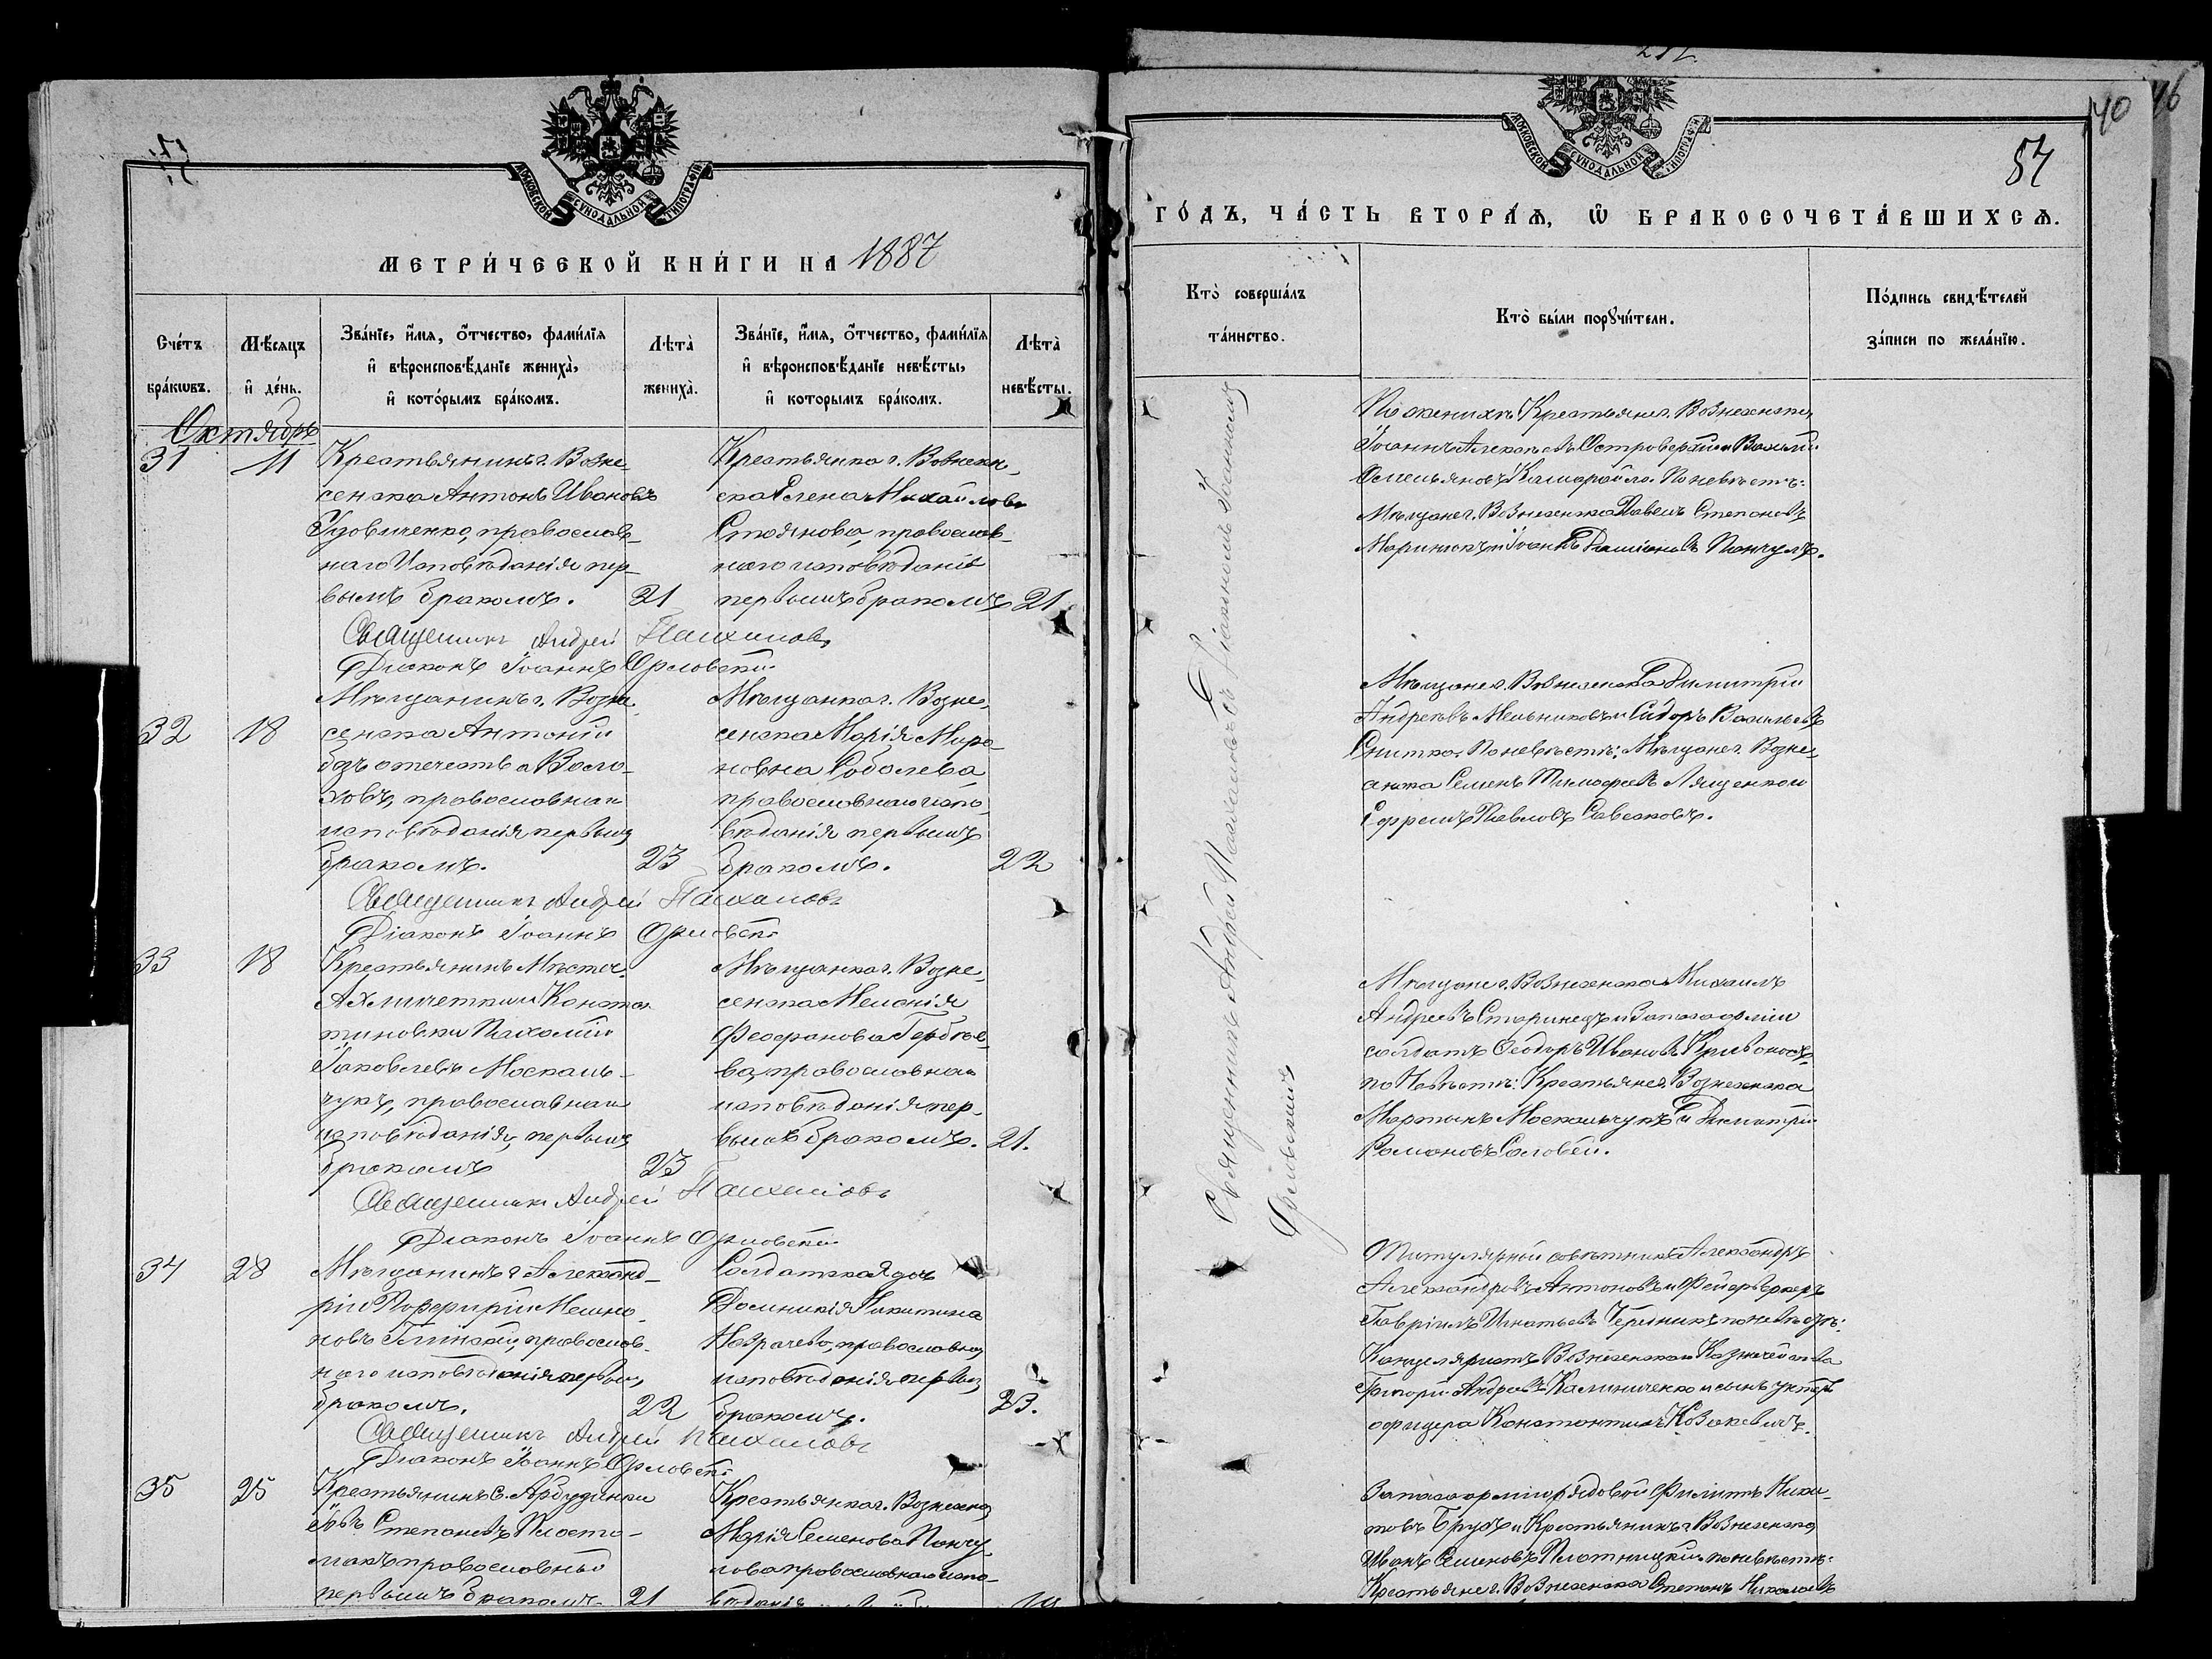 МОСКОВСКОЙ СѴНОДАЛЬНОЙ ТИПОГРАФІИ
МЕТРИ́ЧЕСКОЙ КНИ́ГИ НА 1887
Сче́тъ бра́кѡвъ.
Мѣ́сяцъ и҆ де́нь.
Зва́нїе, и҆́мѧ, ѻ҆́тчество, фами́лїѧ
и҆ вѣроисповѣ́данїе жениха̀,
и҆ кото́рымъ бра́комъ.
Лѣта̀ жениха̀.
Зва́нїе, и҆́мѧ, ѻ҆́тчество, фами́лїѧ
и҆ вѣроисповѣ́данїе невѣ́сты,
и҆ которымъ бра́комъ.
Лѣта̀ невѣ́сты.
Октябрь
31
11
Крестьянинъ г. Возне-
сенска Антонъ Ивановъ
Удовиченко, православ-
наго исповѣданія пер-
вымъ бракомъ.
21
Крестьянка г. Вознесен-
ска Елена Михайлова
Стоянова, православ-
наго исповѣданія
первымъ бракомъ
21
Священникъ Андрей
Діаконъ Іоаннъ Орловскій
32
18
Мѣщанинъ г. Возне-
сенска Антоній
безъ отечества
православнаго
исповѣданія первымъ
бракомъ.
23
Мѣщанка г. Возне-
сенска Марія Миро-
новна Соболева
православнаго испо-
вѣданія первымъ
бракомъ.
22
Священникъ Андрей
Діаконъ Іоаннъ Орловскій
33
18
Крестьянинъ Мѣстеч.
Константиновки Пахомій
Іаковлевъ Москаль-
чукъ, православнаго
исповѣданія, первымъ
бракомъ
23
Мѣщанка г. Возне-
сенска Меланія
Феофанова
православнаго
исповѣданія пер-
вымъ бракомъ.
21.
Священникъ Андрей
Діаконъ Іоаннъ Орловскій
34
28
Мѣщанинъ г. Александ-
ріи Порфирій
православ-
наго исповѣданія первымъ
бракомъ.
22
Солдатская дочь
Домникія Никитина
православнаго
исповѣданія первымъ
бракомъ.
23.
Священникъ Андрей
Діаконъ Іоаннъ Орловскій
35
25
Крестьянинъ с. Арбузинки
Іовъ Степановъ
православный
первымъ бракомъ
21
Крестьянка г. Вознесенска
Марія Семенова Панчу-
лова православнаго испо-
вѣданія
МОСКОВСКОЙ СѴНОДАЛЬНОЙ ТИПОГРАФІИ
40
46
57
ГО́ДЪ, ЧА́СТЬ ВТОРА́Ѧ, Ѽ БРАКОСОЧЕТА́ВШИХСѦ.
Кто̀ соверша́лъ та́инство.
Кто̀ бы́ли порꙋчи́тели.
По́дпись свидѣ́телей за́писи по жела́нїю.
Священникъ Андрей съ Діакономъ Іоанномъ
Орловскимъ
По женихѣ: Крестьяне г. Вознесенска
Іоаннъ Островерхій и Василій
Емельяновъ По невѣстѣ:
Мѣщане г. Вознесенска Павелъ Степановъ
Маринюкъ и Іоаннъ Даміановъ Панчулъ.
Мѣщане г. Вознесенска Димитрій
Андреевъ Мельниковъ и Сидоръ Васильевъ
Снитко. По невѣстѣ: Мѣщане г. Возне-
сенска Семенъ Тимофеевъ Лященко и
Ефремъ Павловъ Савесковъ.
Мѣщане г. Вознесенска Михаилъ
Андреевъ Старинецъ и Запаса арміи
солдатъ Ѳеодоръ Ивановъ Кривоносъ,
по Невѣстѣ: Крестьяне г. Вознесенска
Мартынъ Москальчукъ и Димитрій
Романовъ Соловей.
Титулярный совѣтникъ Александръ
Александровъ Антоновъ и Фейерверкеръ
Гавріилъ Игнатьевъ по невѣстѣ:
Канцеляристъ Вознесенскаго Казначейства
Григорій Андреевъ Калиниченко и сынъ унтеръ
офицера Константинъ
Запаса арміи рядовой Филиппъ Ники-
товъ и Крестьянинъ г. Вознесенска
Иванъ Семеновъ Плотницкій по невѣстѣ:
Крестьяне г. Вознесенска Степанъ Николаевъ